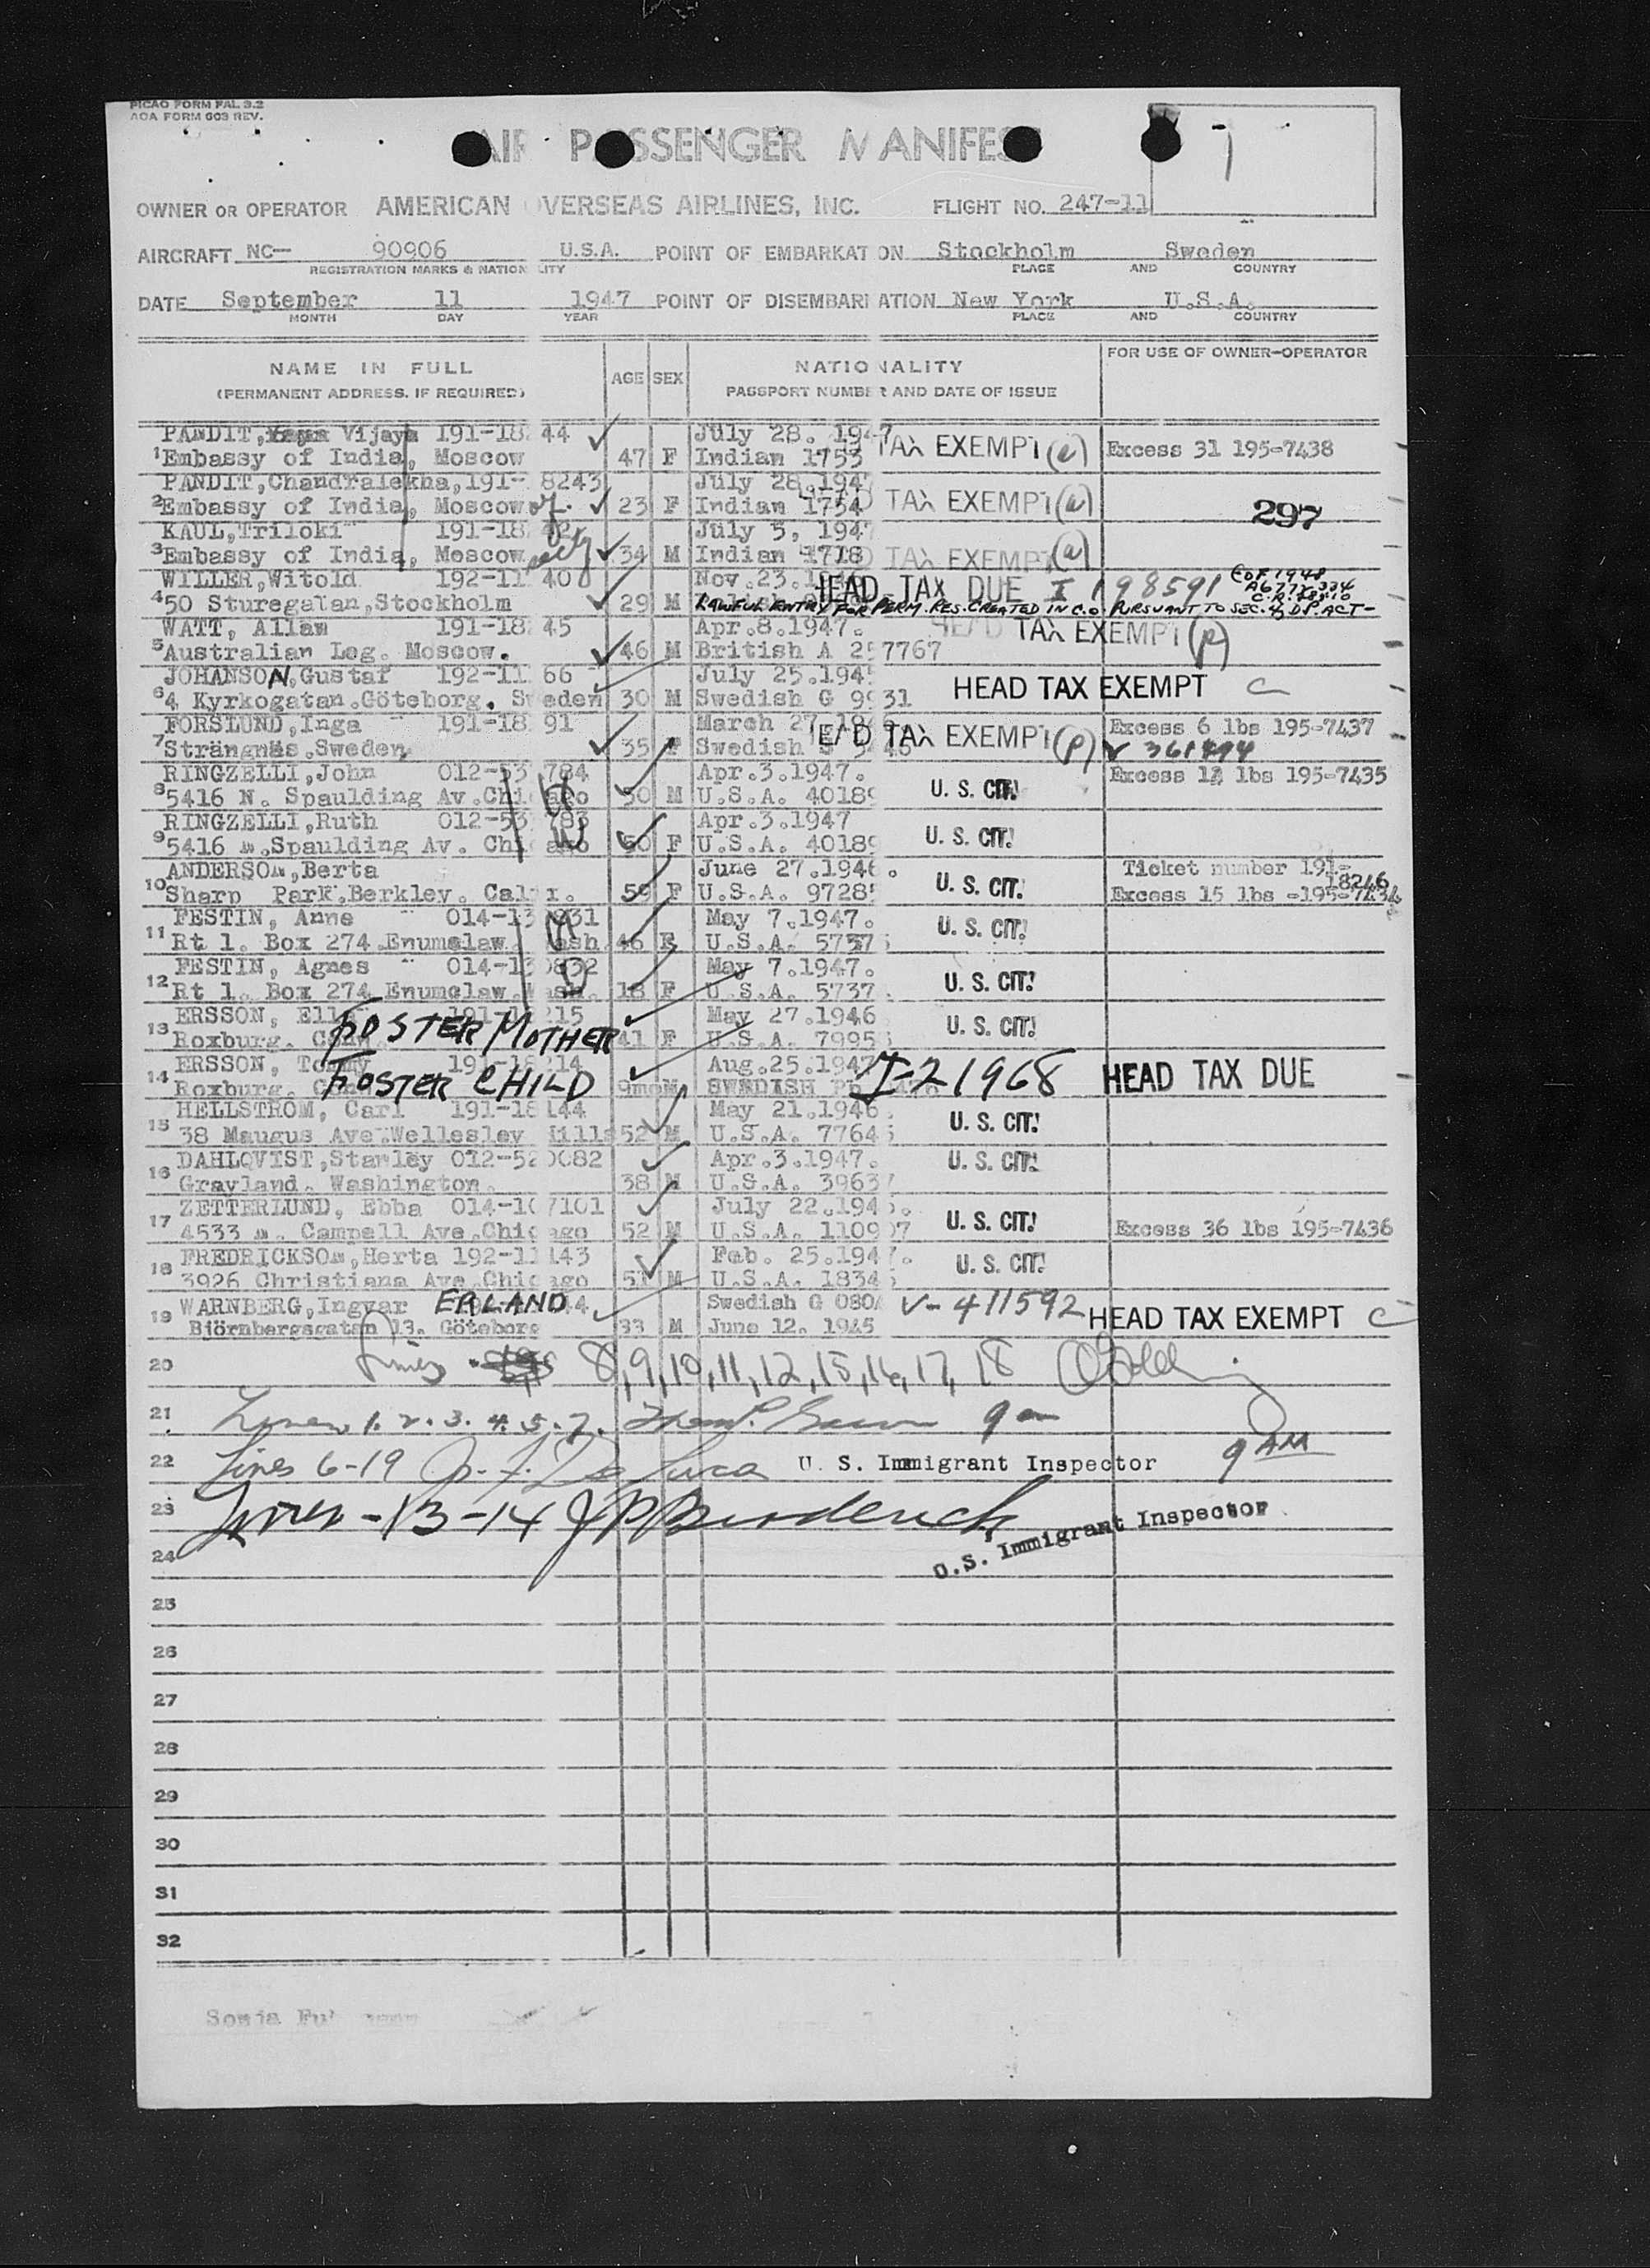 PICAO FORM FAL 3.2
AOA FORM 603 REV.
AIR PASSENGER MANIFES
1
OWNER OR OPERATOR AMERICAN OVERSEAS AIRLINES, INC. FLIGHT NO. 247-11
AIRCRAFT NC— 90906 U.S.A. POINT OF EMBARKATION Stockholm Sweden
REGISTRATION MARKS & NATIONALITY PLACE AND COUNTRY
DATE September 11 1947 POINT OF DISEMBARKATION New York U.S.A.
MONTH DAY YEAR PLACE AND COUNTRY
NAME IN FULL AGE SEX NATIONALITY FOR USE OF OWNER-OPERATOR
(PERMANENT ADDRESS, IF REQUIRED) PASSPORT NUMBER AND DATE OF ISSUE
PANDIT, Vijaya 191-18 44 July 28. 1947
1 Embassy of India, Moscow 47 F Indian 1753 TAX EXEMPT (a) Excess 31 195-7438
PANDIT,Chandralekha,191- 8243 July 28.194
2 Embassy of India, Moscow 23 F Indian 1754 TAX EXEMPT (a) 297
KAUL,Triloki 191-18 42 July 5, 194
3 Embassy of India, Moscow secty 34 M Indian 1718 TAX EXEMPT (a)
WILLER,Witold 192-11 40 Nov.23. HEAD TAX DUE I 198591
4 50 Sturegatan,Stockholm 29 M LAWFUL ENTRY FOR PERM. RES. CREATED IN C.O. PURSUANT TO SEC. 4, D.P. ACT-
WATT, Allan 191-18 45 Apr.8.1947. HEAD TAX EXEMPT (p)
5 Australian Leg. Moscow. 46 M British A 2 7767
JOHANSON,Gustaf 192-11 66 July 25.194
6 4 Kyrkogatan.Göteborg. Sweden 30 M Swedish G 9 31 HEAD TAX EXEMPT C
FORSLUND,Inga 191-18 91 March 27. Excess 6 lbs 195-7437
7 Strängnäs.Sweden, 35 F Swedish HEAD TAX EXEMPT (p) V 361494
RINGZELLI,John 012-53 784 Apr.3.1947. Excess 14 lbs 195-7435
8 5416 N. Spaulding Av.Chicago 50 M U.S.A. 40189 U. S. CIT.
RINGZELLI,Ruth 012-53 783 Apr.3.1947
9 5416 N.Spaulding Av. Chicago 50 F U.S.A. 40189 U. S. CIT.
ANDERSON,Berta June 27.1946. Ticket number 191-18246
10 Sharp Park.Berkley. Calif. 59 F U.S.A. 9728 U. S. CIT. Excess 15 lbs -195-7434
FESTIN, Anne 014-13 831 May 7.1947.
11 Rt 1. Box 274.Enumclaw. Wash 46 F U.S.A. 5737 U. S. CIT.
FESTIN, Agnes 014-13 832 May 7.1947.
12 Rt 1. Box 274 Enumclaw.Wash. 18 F U.S.A. 5737 U. S. CIT.
ERSSON, 191-18215 May 27.1946
13 Roxburg. Conn. FOSTER MOTHER 41 F U.S.A. 7995 U. S. CIT.
ERSSON, Tommy 191-18214 Aug.25.1947
14 Roxburg. FOSTER CHILD 9mo M SWEDISH I-21968 HEAD TAX DUE
HELLSTROM, Carl 191-18144 May 21.1946.
15 38 Maugus Ave.Wellesley Hills 52 M U.S.A. 7764 U. S. CIT.
DAHLQVIST,Stanley 012-520082 Apr.3.1947.
16 Grayland. Washington. 38 M U.S.A. 3963 U. S. CIT.
ZETTERLUND, Ebba 014-107101 July 22.194
17 4533 N. Campell Ave.Chicago 52 M U.S.A. 110907 U. S. CIT. Excess 36 lbs 195-7436
FREDRICKSON,Herta 192-11143 Feb. 25.1947.
18 3926 Christiana Ave.Chicago 51 M U.S.A. 1834 U. S. CIT.
WARNBERG,Ingvar ERLAND Swedish G 080 V-411592
19 Björnbergsgatan 13. Göteborg 33 M June 12. 1945 HEAD TAX EXEMPT C
20 Lines 8,9,10,11,12,15,16,17,18
21 Lines 1.2.3.4.5.7. 9 am
22 Lines 6-19 U. S. Immigrant Inspector 9 AM
23 Lines-13-14 J P Broderick
24 U.S. Immigrant Inspector
25
26
27
28
29
30
31
32
Sonja